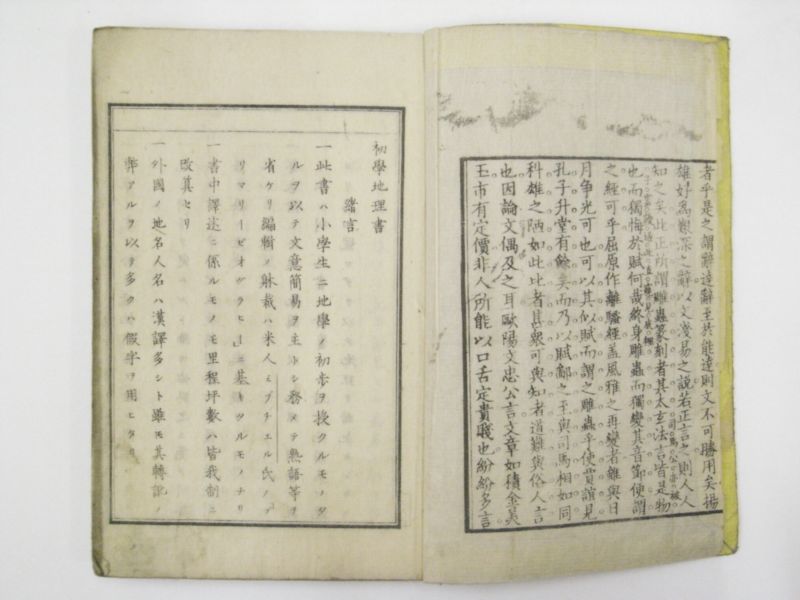 者乎是之謂辭達辭至於能達則文不可勝用矣揚
雄好爲艱深之辭以文淺易之說若正言之則人人
知之矣此正所謂雕蟲篆刻者其太玄法言皆是物
也而獨悔於賦何哉終身雕蟲而獨變其音節便謂
之經可乎屈原作離騷經蓋風雅之再變者雖與日
月争光可也可以其似賦而謂之雕蟲乎使賈誼見
孔子升堂有餘矣而乃以賦鄙之至與司馬相如同
科雄之陋如此比者甚衆可與知者道難與俗人言
也因論文偶及之耳歐陽文忠公言文章如積金美
玉市有定價非人所能以口舌定貴賤也紛紛多言
初學地理書
緒言
一此書ハ小學生ニ地學ノ初歩ヲ授クルモノタ
ルヲ以テ文意簡易ヲ主トシ務メテ熟語等ヲ
省ケリ編輯ノ躰裁ハ米人ミプチェル氏ノプ
リマリーゼオガラヒーニ基キツルモノナリ
一書中譯述ニ係ルモノモ里程坪數ハ皆我制ニ
改算セリ
一外國ノ地名人名ハ漢譯多シト雖モ其轉訛ノ
弊アルヲ以テ多クハ假字ヲ用ヒタリ